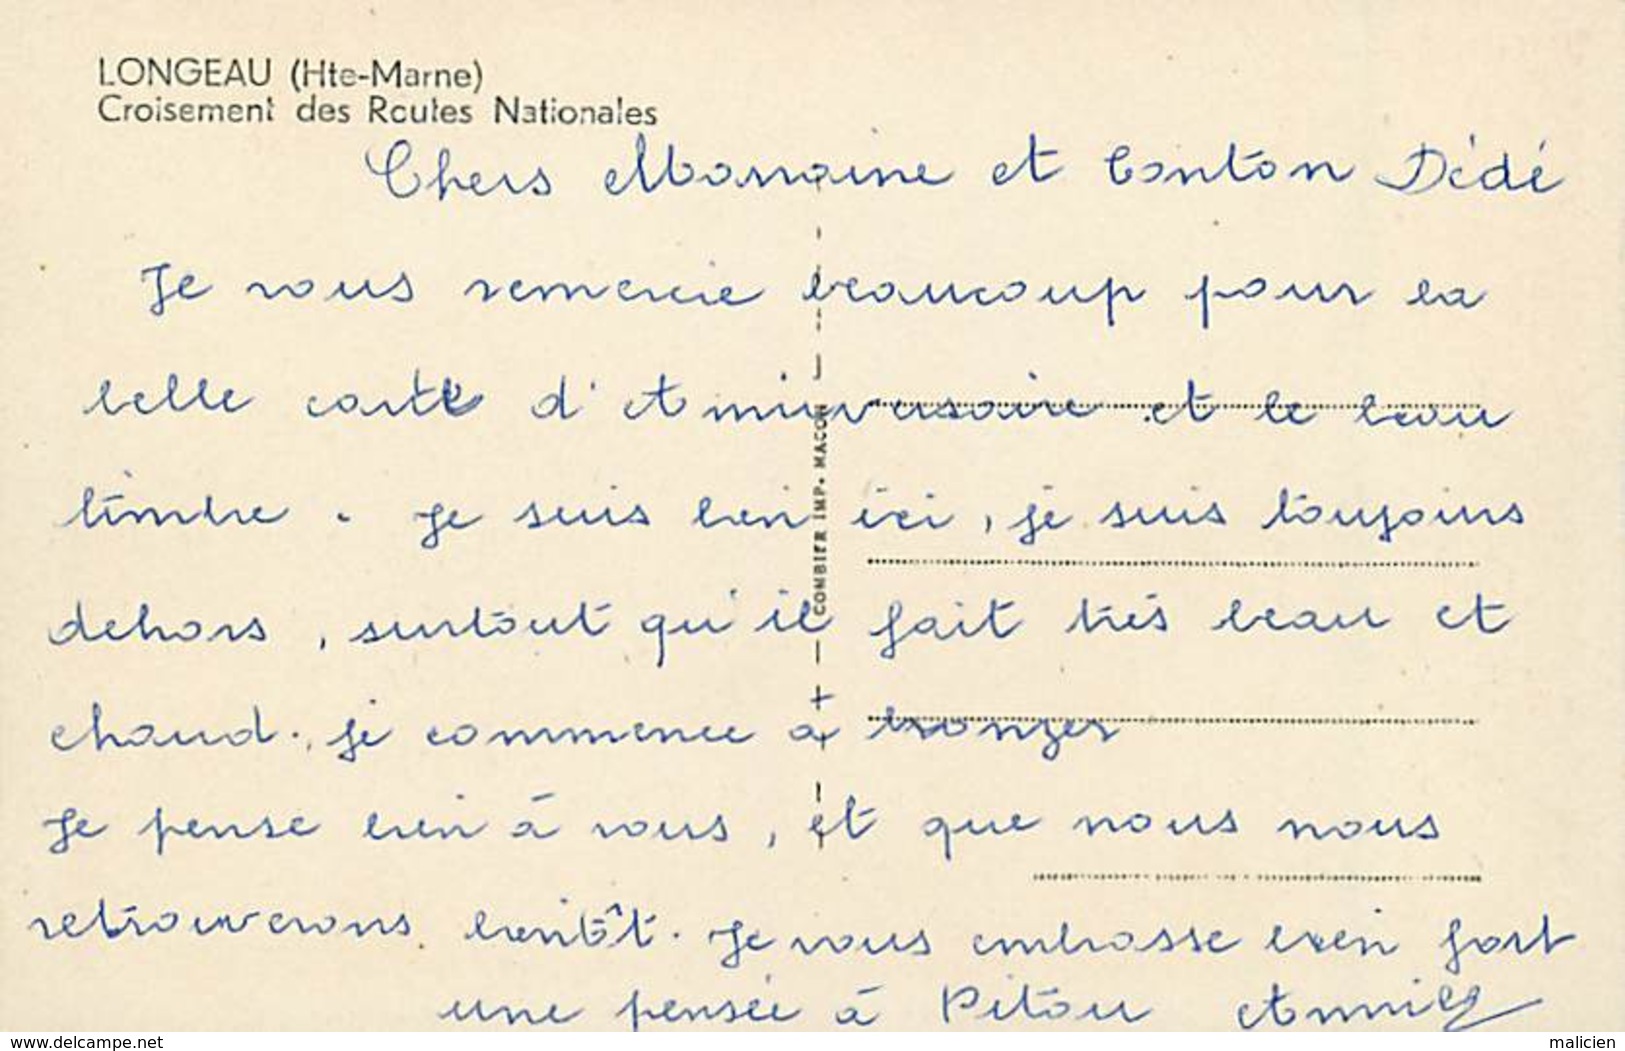 LONGEAU (Hte-Marne)
Croisement des Routes Nationales
Chers Marraine et Tonton Dédé
Je vous remercie beaucoup pour la
belle carte d'Anniversaire et le beau
timbre. Je suis bien ici, je suis toujours
dehors, surtout qu'il fait très beau et
chaud. je commence à bronzer
Je pense bien à vous, et que nous nous
retrouverons bientôt. Je vous embrasse bien fort
une pensée à Pitou Annick
COMBIER IMP. MACON
www.delcampe.net
malicien